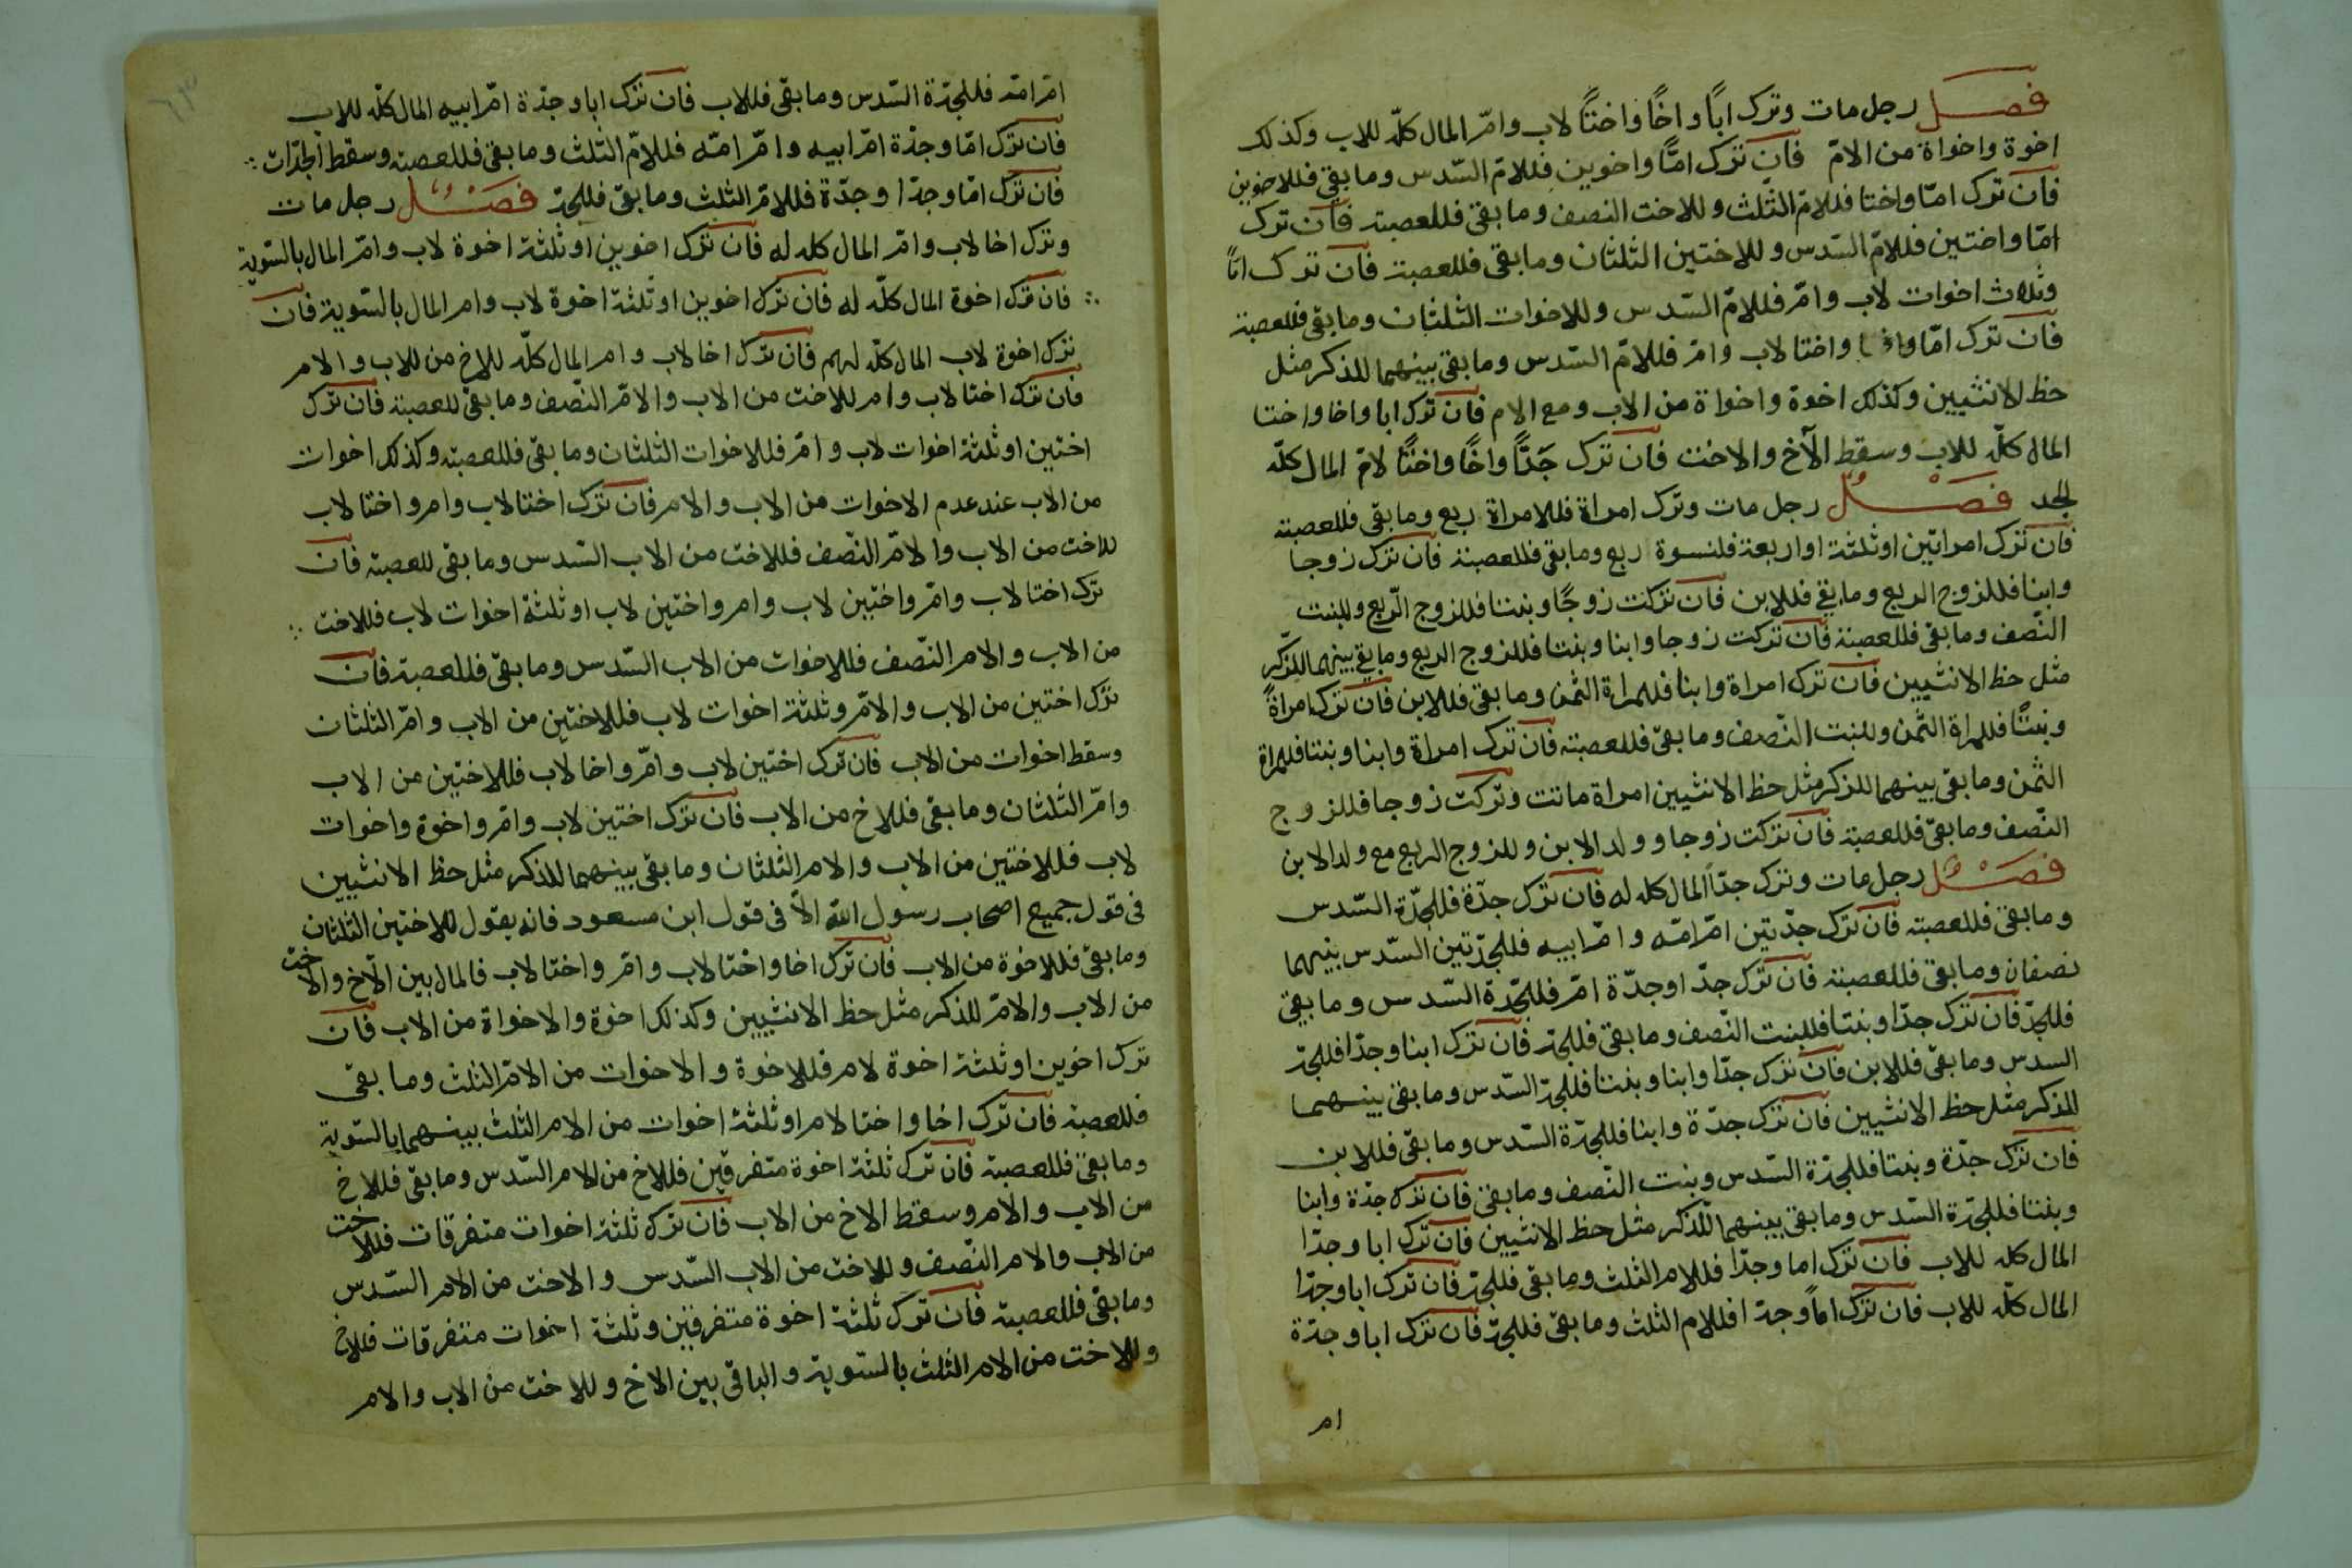 فصل رجل مات وترك اباً واخاً واختاً لاب وامّ المال كلّه للاب وكذلك
اخوة واخواة من الامّ فان ترك امّاً واخوين فللامّ السّدس وما بقى فللاخوين
فان ترك امّا واختا فللامّ الثّلث وللاخت النصف وما بقى فللعصبة فان ترك
امّا واختين فللامّ السّدس وللاختين الثلثان وما بقى فللعصبة فان ترك امّاً
وثلاث اخوات لاب وامّ فللامّ السّدس وللاخوات الثلثان وما بقى فللعصبة
فان ترك امّا واختا لاب وامّ فللامّ السّدس وما بقى بينهما للذكر مثل
حظ الانثيين وكذلك اخوة واخواة من الاب ومع الام فان ترك ابا واخا واختا
المال كلّه للاب وسقط الآخ والاخت فان ترك جَدّاً واخًا واختًا لامّ المال كلّه
للجد فصل رجل مات وترك امراة فللامراة ربع وما بقى فللعصبة
فان ترك امراتين او ثلثة او اربعة فلنسوة ربع وما بقى فللعصبة فان ترك زوجا
وابنا فللزوج الربع وما بقي فللابن فان تركت زوجًا وبنتا فللزوج الرّبع وللبنت
النّصف وما بقى فللعصبة فان تركت زوجا وابنا وبنتا فللزوج الربع وما بقي بينهما للذكر
مثل حظ الانثيين فان ترك امراة وابنا فللمراة الثمن وما بقى فللابن فان ترك امراةً
وبنتًا فللمراة الثّمن وللبنت النّصف وما بقى فللعصبة فان ترك امراة وابنا وبنتا فللمراة
الثّمن وما بقى بينهما للذكر مثل حظ الانثيين امراة ماتت وتركت زوجا فللزوج
النّصف وما بقىّ فللعصبة فان تركت زوجا وولد الابن وللزوج الربع مع ولد الابن
فصل رجل مات وترك جدّاً المال كله له فان ترك جدّة فللجدّة السّدس
وما بقى فللعصبة فان ترك جدّتين امّ امّه وامّ ابيه فللجدّتين السّدس بينهما
نصفان وما بقى فللعصبة فان ترك جدّا وجدّة امّ فللجدّة السّدس وما بقي
فللجدّ فان ترك جدّا وبنتا فللبنت النّصف وما بقى فللجدّ فان ترك ابنا وجدّا فللجدّ
السدس وما بقىّ فللابن فان ترك جدّا وابنا وبنتا فللجدّ السّدس وما بقى بينهما
للذكر مثل حظ الانثيين فان ترك جدّة وابنا فللجدّة السّدس وما بقى فللابن
فان ترك جدّة وبنتا فللجدّة السّدس وبنت النّصف وما بقىّ فان ترك جدّة وابنا
وبنتا فللجدّة السّدس وما بقى بينهما للذكر مثل حظ الانثيين فان ترك ابا وجدّا
المال كله للاب فان ترك اما وجدّا فللام الثلث وما بقى فللجدّ فان ترك ابا وجدّا
المال كلّه للاب فان ترك امّاً وجدّا فللام الثلث وما بقىّ فللجدّ فان ترك ابا وجدّة
ام
٦٣
امّ امّه فللجدّة السّدس وما بقى فللاب فان ترك ابا وجدّة امّ ابيه المال كلّه للاب
فان ترك امّا وجدّة امّ ابيه وامّ امّه فللامّ الثّلث وما بقى فللعصبة وسقط الجدّات
فان ترك امّا وجدّا وجدّة فللامّ الثلث وما بقىّ فللجدّ فصل رجل مات
وترك اخا لاب وامّ المال كله له فان ترك اخوين او ثلثة اخوة لاب وامّ المال بالسّوية
فان ترك اخوة المال كلّه له فان ترك اخوين او ثلثة اخوة لاب وام المال بالسّوية فان
ترك اخوة لاب المال كلّه لهم فان ترك اخا لاب وام المال كلّه للاخ من للاب والام
فان ترك اختا لاب وام للاخت من الاب والامّ النّصف وما بقىّ للعصبة فان ترك
اختين او ثلثة اخوات لاب وامّ فللاخوات الثلثان وما بقى فللعصبة وكذلك اخوات
من الاب عند عدم الاخوات من الاب والام فان ترك اختا لاب وام واختا لاب
للاخت من الاب والامّ النّصف فللاخت من الاب السّدس وما بقى للعصبة فان
ترك اختا لاب وامّ واختين لاب وام واختين لاب او ثلثة اخوات لاب فللاخت
من الاب والام النّصف فللاخوات من الاب السّدس وما بقىّ فللعصبة فان
ترك اختين من الاب والامّ وثلثة اخوات لاب فللاختين من الاب وامّ الثلثان
وسقط اخوات من الاب فان ترك اختين لاب وامّ واخا لاب فللاختين من الاب
وامّ الثلثان وما بقى فللاخ من الاب فان ترك اختين لاب وامّ واخوة واخوات
لاب فللاختين من الاب والام الثلثان وما بقى بينهما للذكر مثل حظ الانثيين
فى قول جميع اصحاب رسول الله الّا فى قول ابن مسعود فانه يقول للاختين الثلثان
وما بقىّ فللاخوة من الاب فان ترك اخا واختا لاب وامّ واختا لاب فالمال بين الآخ والاخت
من الاب والامّ للذكر مثل حظ الانثيين وكذلك اخوة والاخواة من الاب فان
ترك اخوين او ثلثة اخوة لام فللاخوة والاخوات من الامّ الثلث وما بقى
فللعصبة فان ترك اخا واختا لام او ثلثة اخوات من الام الثلث بينهما بالسّوية
وما بقىّ فللعصبة فان ترك ثلثة اخوة متفرقين فللاخ من الام السّدس وما بقى فللاخ
من الاب والام وسقط الاخ من الاب فان ترك ثلثة اخوات متفرقات فللاخت
من الاب والام النّصف وللاخت من الاب السّدس والاخت من الام السّدس
وما بقىّ فللعصبة فان ترك ثلثة اخوة متفرقين وثلثة اخوات متفرقات فللاخ
وللاخت من الام الثلث بالسّوية والباقى بين الاخ وللاخت من الاب والام